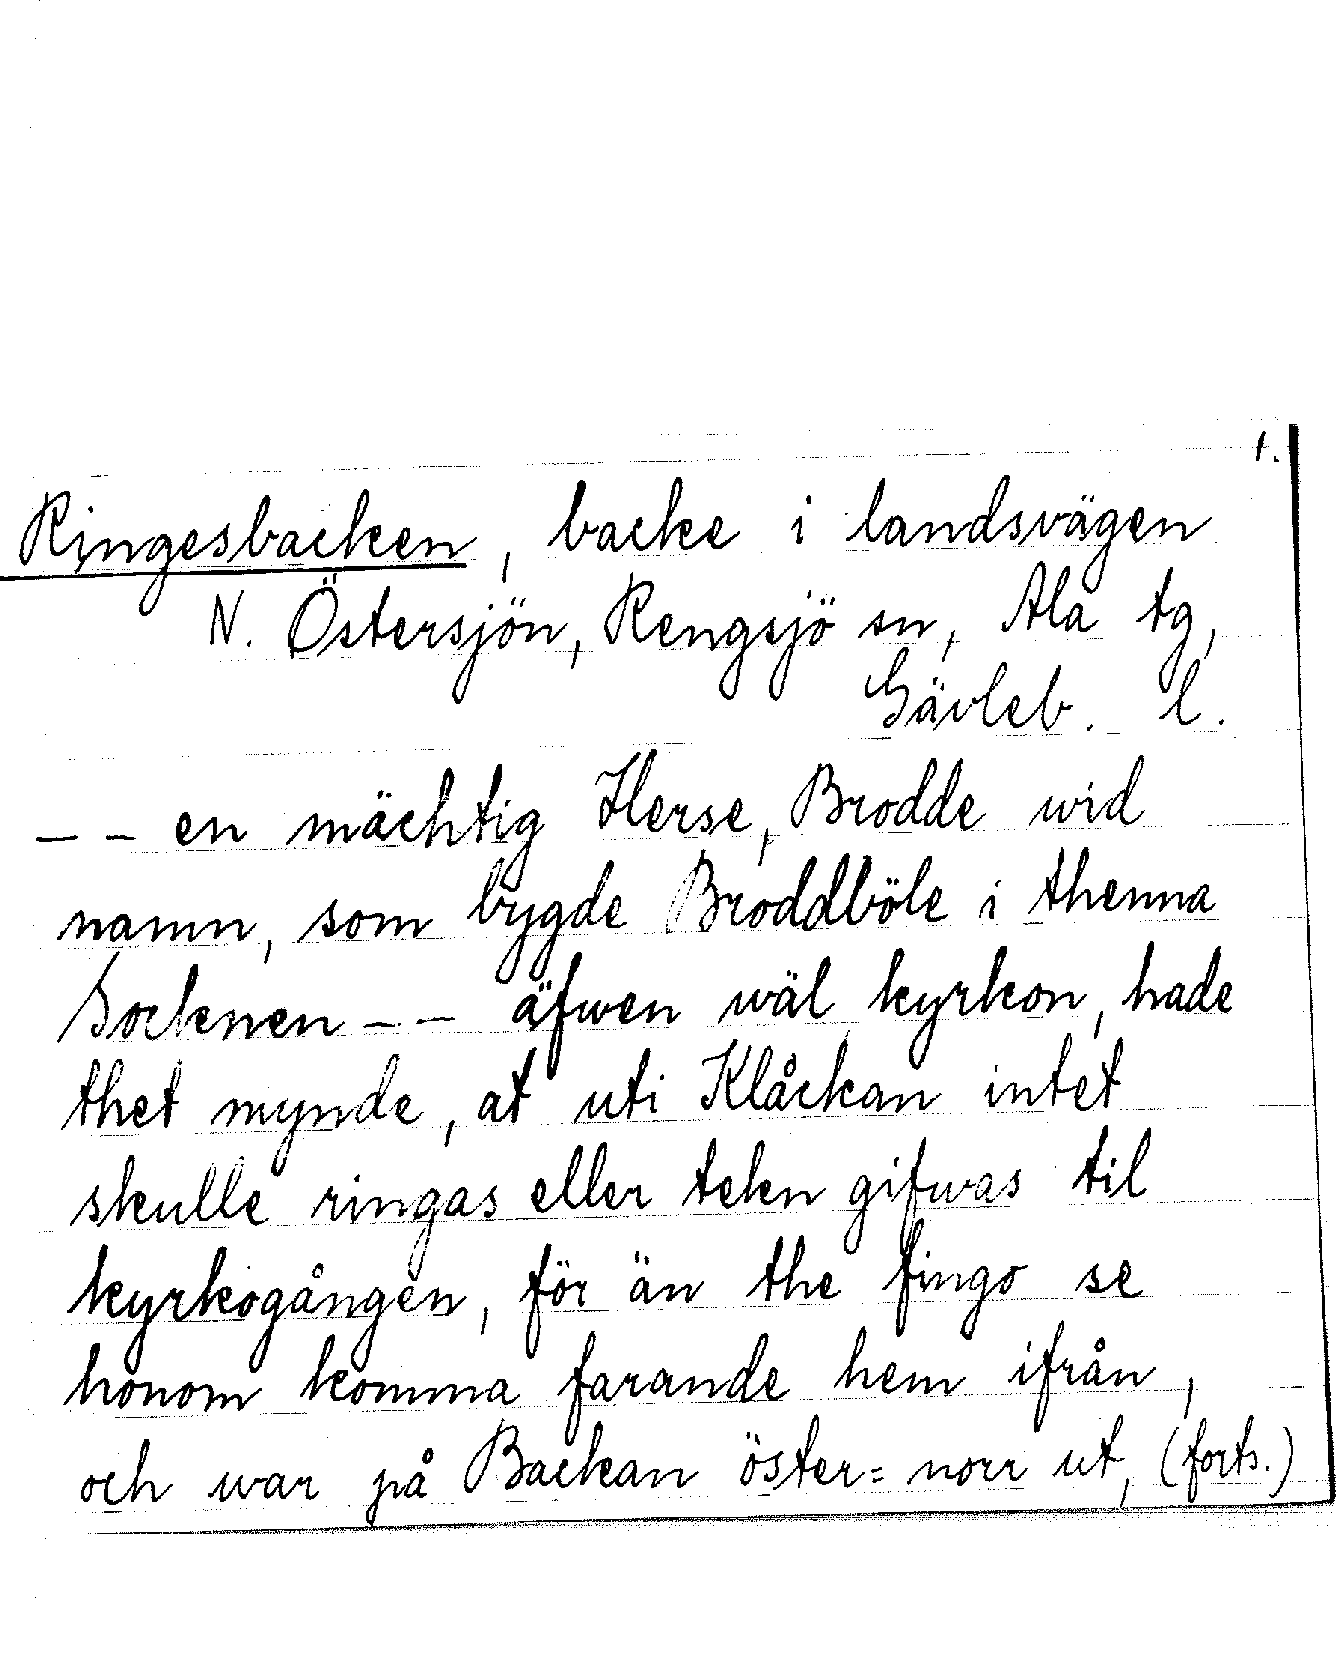 1.
Ringesbacken, backe i landsvägen
N. Östersjön, Rengsjö sn, Ala tg,
Gävleb. l.
– – en mächtig Herse, Brodde wid
namn, som bygde Broddböle i thenna
Socknen – – äfwen wäl kyrkon, hade
thet mynde, at uti Klåckan intet
skulle ringas eller tekn gifwas til
kyrkogången, för än the fingo se
honom komma farande hem ifrån,
och war på Backan öster= norr ut, (forts.)